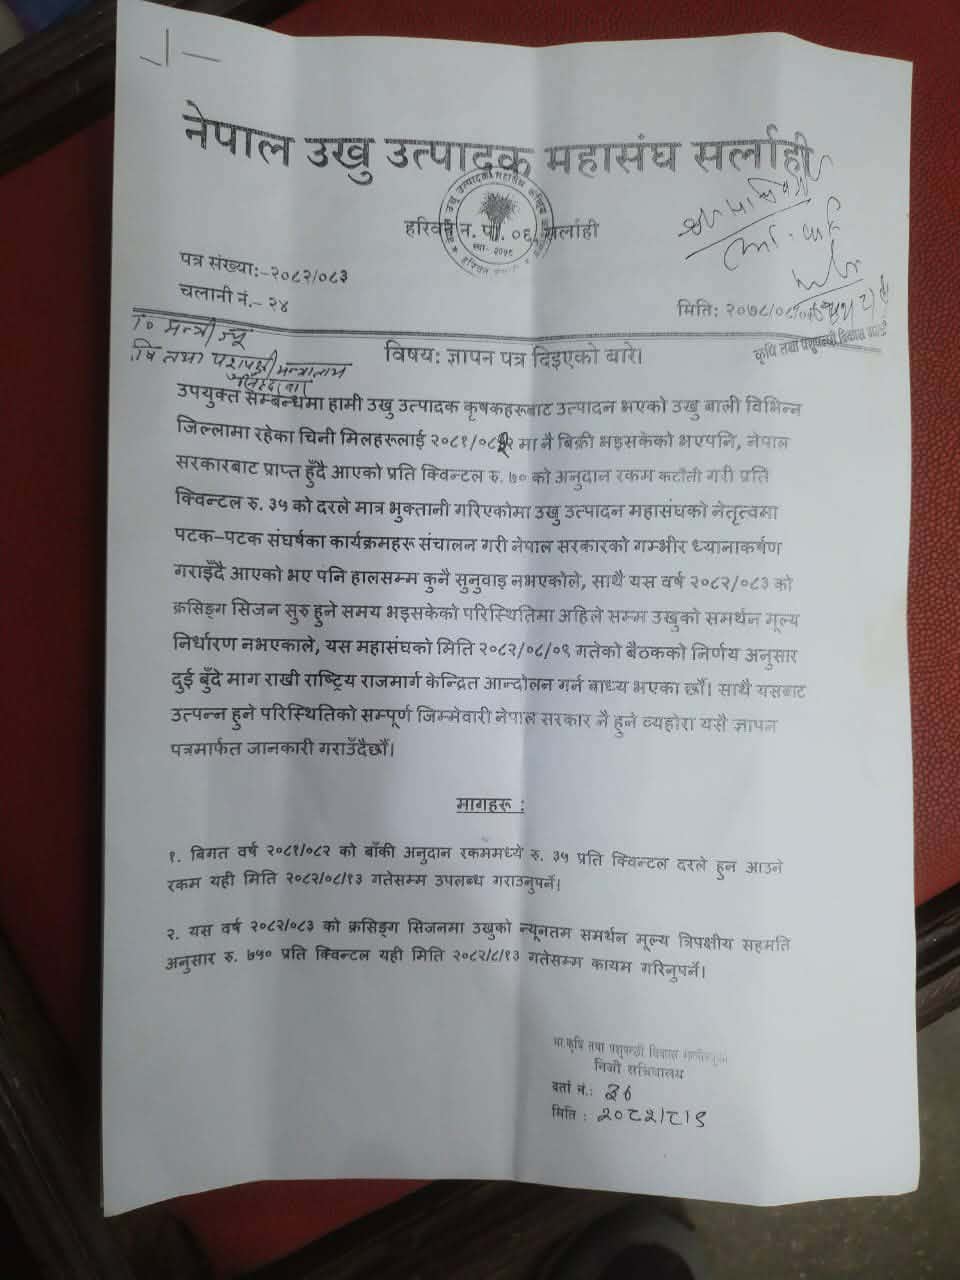 नेपाल उखु उत्पादक महासंघ सर्लाही
हरिवन न. पा. ०६, सर्लाही
पत्र संख्या:-२०८२/०८३
चलानी नं.- २४
मिति: २०७८/०८
To मन्त्री ज्यू
विषय: ज्ञापन पत्र दिइएको बारे।
कृषि तथा पशुपन्छी विकास मन्त्री
उपयुक्त सम्बन्धमा हामी उखु उत्पादक कृषकहरूबाट उत्पादन भएको उखु बाली विभिन्न
जिल्लामा रहेका चिनी मिलहरूलाई २०८१/०८२ मा नै बिक्री भइसकेको भएपनि, नेपाल
सरकारबाट प्राप्त हुँदै आएको प्रति क्विन्टल रु. ७० को अनुदान रकम कटौती गरी प्रति
क्विन्टल रु. ३५ को दरले मात्र भुक्तानी गरिएकोमा उखु उत्पादन महासंघको नेतृत्वमा
पटक-पटक संघर्षका कार्यक्रमहरू संचालन गरी नेपाल सरकारको गम्भीर ध्यानाकर्षण
गराइँदै आएको भए पनि हालसम्म कुनै सुनुवाइ नभएकोले, साथै यस वर्ष २०८२/०८३ को
क्रसिङ्ग सिजन सुरु हुने समय भइसकेको परिस्थितिमा अहिले सम्म उखुको समर्थन मूल्य
निर्धारण नभएकाले, यस महासंघको मिति २०८२/०८/०९ गतेको बैठकको निर्णय अनुसार
दुई बुँदे माग राखी राष्ट्रिय राजमार्ग केन्द्रित आन्दोलन गर्न बाध्य भएका छौं। साथै यसबाट
उत्पन्न हुने परिस्थितिको सम्पूर्ण जिम्मेवारी नेपाल सरकार नै हुने व्यहोरा यसै ज्ञापन
पत्रमार्फत जानकारी गराउँदैछौं।
मागहरू :
१. बिगत वर्ष २०८१/०८२ को बाँकी अनुदान रकममध्ये रु. ३५ प्रति क्विन्टल दरले हुन आउने
रकम यही मिति २०८२/०८/१३ गतेसम्म उपलब्ध गराउनुपर्ने।
२. यस वर्ष २०८२/०८३ को क्रसिङ्ग सिजनमा उखुको न्यूनतम समर्थन मूल्य त्रिपक्षीय सहमति
अनुसार रु. ७५० प्रति क्विन्टल यही मिति २०८२/८/१३ गतेसम्म कायम गरिनुपर्ने।
मा.कृषि तथा पशुपन्छी विकास मन्त्रीज्युको
निजी सचिवालय
दर्ता नं.: ३०
मिति : २०८२/८/९